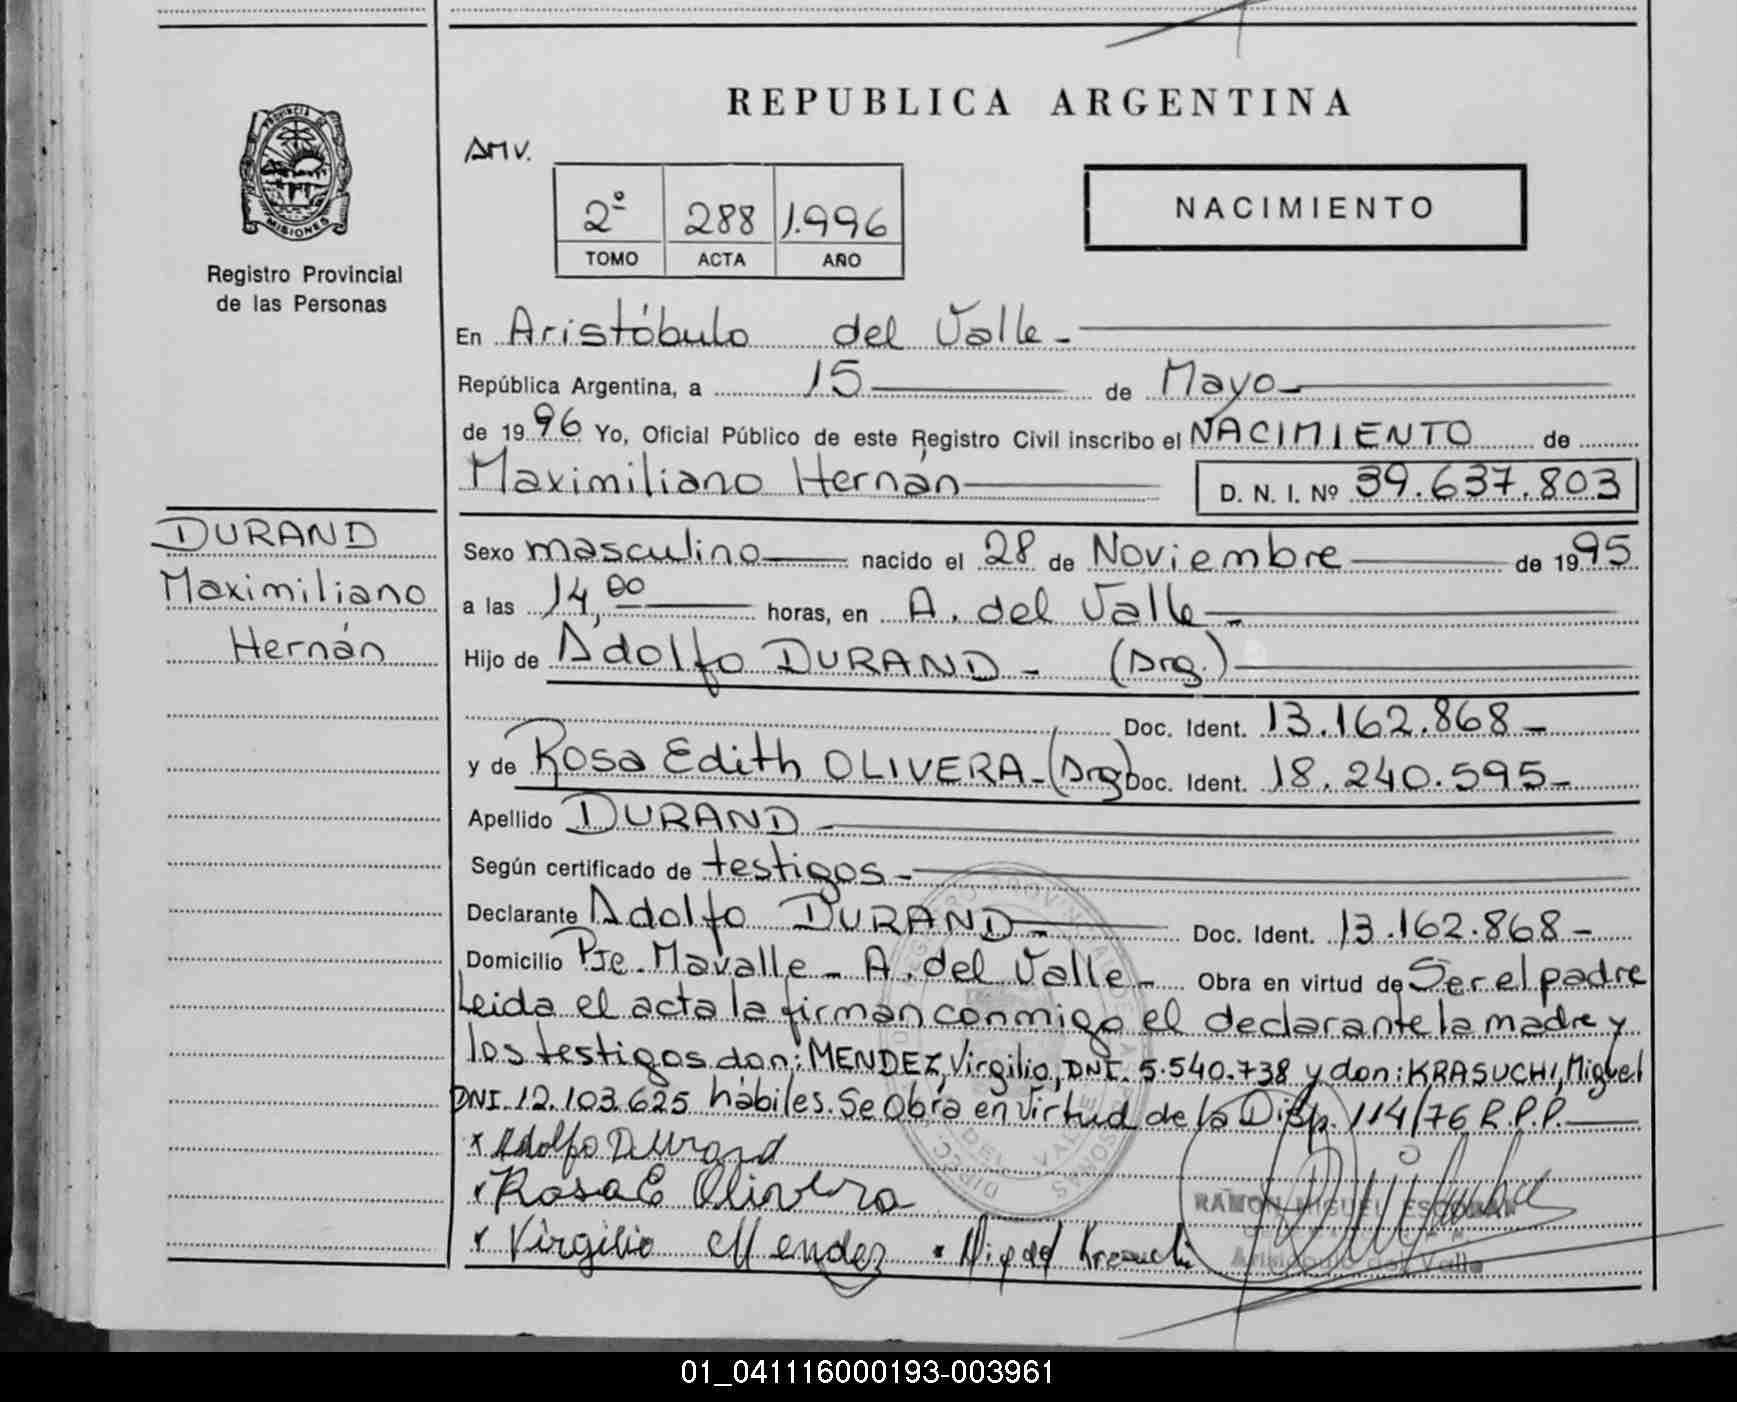 REPUBLICA ARGENTINA
PROVINCIA DE
MISIONES
Registro Provincial
de las Personas
AMV.
2º 288 1.996
TOMO ACTA AÑO
NACIMIENTO
En Aristóbulo del Valle -
República Argentina, a 15 de Mayo -
de 1996 Yo, Oficial Público de este Registro Civil inscribo el NACIMIENTO de
Maximiliano Hernán D. N. I. Nº 39.637.803
DURAND
Maximiliano
Hernán
Sexo masculino nacido el 28 de Noviembre de 1995
a las 14,00 horas, en A. del Valle -
Hijo de Adolfo DURAND - (Arg.)
Doc. Ident. 13.162.868 -
y de Rosa Edith OLIVERA - (Arg) Doc. Ident. 18.240.595 -
Apellido DURAND -
Según certificado de testigos -
Declarante Adolfo DURAND - Doc. Ident. 13.162.868 -
Domicilio Pje. Mavalle - A. del Valle - Obra en virtud de Ser el padre
Leida el acta la firman conmigo el declarante la madre y
los testigos don: MENDEZ, Virgilio, DNI. 5.540.738 y don: KRASUCHI, Miguel
DNI. 12.103.625 hábiles. Se Obra en virtud de la Disp. 114/76 R.P.P.
x Adolfo Durand
x Rosa E Olivera
x Virgilio Mendez x Miguel Krasuchi
RAMON MIGUEL ESCOBAR
Aristóbulo del Valle
01_041116000193-003961